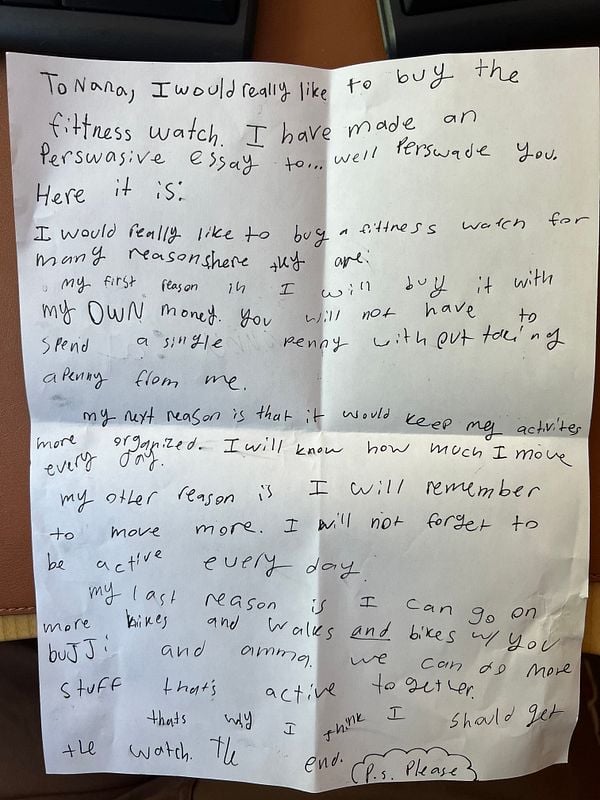 To Nana, I would really like to buy the
fittness watch. I have made an
Perswasive essay to... well Perswade you.
Here it is:
I would really like to buy a fittness watch for
many reasons here they are:
my first reason is I will buy it with
my OWN money. you will not have to
spend a single penny without taking
a penny from me.
my next reason is that it would keep my activites
more organized. I will know how much I move
every day.
my other reason is I will remember
to move more. I will not forget to
be active every day.
my last reason is I can go on
more hikes and walks and bikes w/ you
buJJi and amma. we can do more
stuff that's active together.
thats why I think I should get
the watch. the end.
P.s. Please